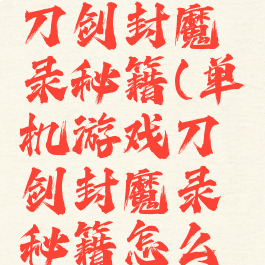 刀剑封魔
录秘籍(单
机游戏刀
剑封魔录
秘籍怎么